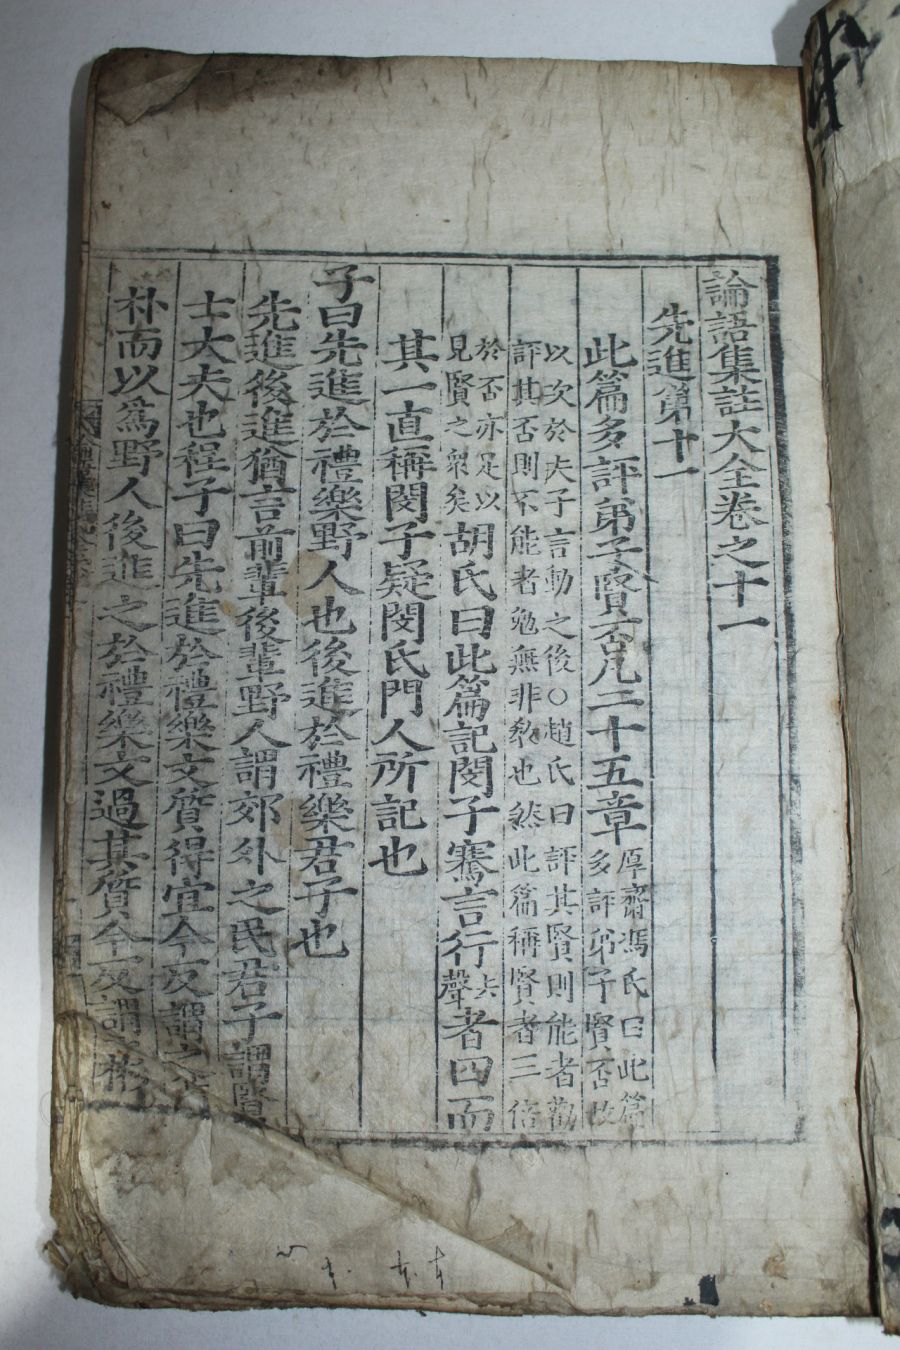 論語集註大全卷之十一
先進第十一
此篇多評弟子賢否凡二十五章厚齋馮氏曰此篇多評弟子賢否故
以次於夫子言動之後○趙氏曰評其賢則能者勸
評其否則不能者勉無非教也然此篇稱賢者三倍
於否亦足以見賢之衆矣胡氏曰此篇記閔子騫言行去聲者四而
其一直稱閔子疑閔氏門人所記也
子曰先進於禮樂野人也後進於禮樂君子也
先進後進猶言前輩後輩野人謂郊外之民君子謂賢
士大夫也程子曰先進於禮樂文質得宜今反謂之
朴而以爲野人後進之於禮樂文過其質今反謂彬